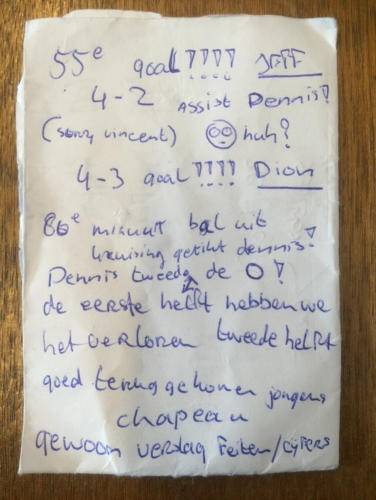 55e goal!!!! JEFF
4-2 assist Dennis!
(sorry vincent) huh?
4-3 goal!!!! Dion
86e minuut bal uit
kruising getikt dennis!
Dennis tweede de O!
de eerste helft hebben we
het verloren tweede helft
goed terug gekomen jongens
chapeau
gewoon verslag Feiten/cijfers